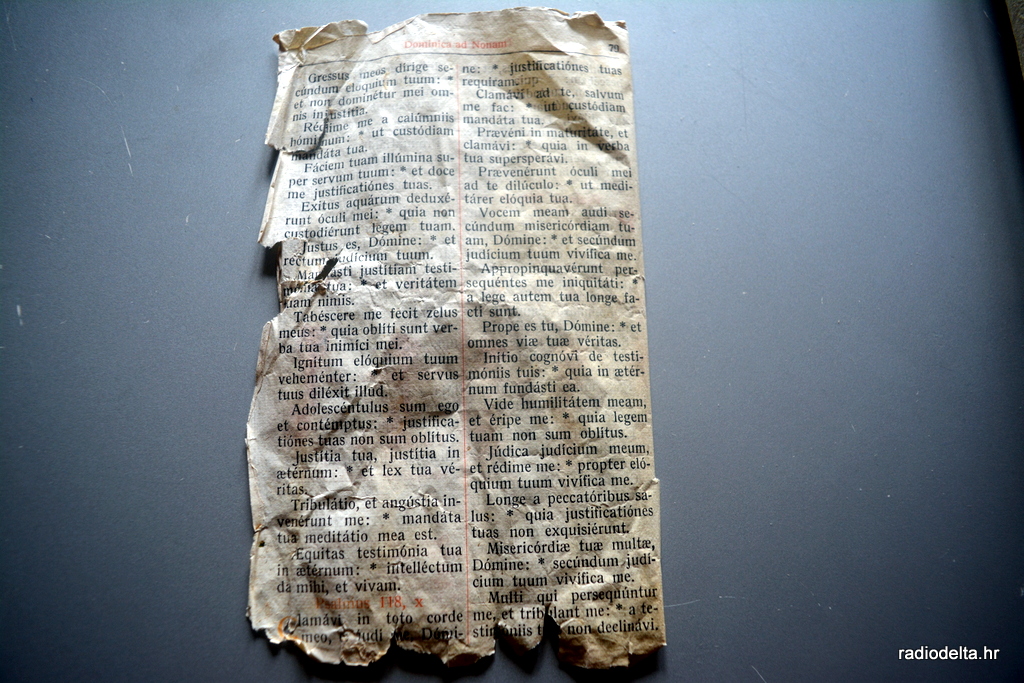 Dominica ad Nonam
79
Gressus meos dirige se-
cúndum elóquium tuum: *
et non dominétur mei om-
nis injustítia.
Rédime me a calúmniis
hóminum: * ut custódiam
mandáta tua.
Fáciem tuam illúmina su-
per servum tuum: * et doce
me justificatiónes tuas.
Exitus aquárum deduxé-
runt óculi mei: * quia non
custodiérunt legem tuam.
Justus es, Dómine: * et
rectum judícium tuum.
Mandásti justítiam testi-
mónia tua: * et veritátem
tuam nimis.
Tabéscere me fecit zelus
meus: * quia oblíti sunt ver-
ba tua inimíci mei.
Ignítum elóquium tuum
veheménter: * et servus
tuus diléxit illud.
Adolescéntulus sum ego
et contémptus: * justifica-
tiónes tuas non sum oblítus.
Justítia tua, justítia in
ætérnum: * et lex tua vé-
ritas.
Tribulátio, et angústia in-
venérunt me: * mandáta
tua meditátio mea est.
Equitas testimónia tua
in ætérnum: * intelléctum
da mihi, et vivam.
Psalmus 118, x
Clamávi in toto corde
meo, me, Dómi-
ne: * justificatiónes tuas
requíram.
Clamávi ad te, salvum
me fac: * ut custódiam
mandáta tua.
Prævéni in maturitáte, et
clamávi: * quia in verba
tua supersperávi.
Prævenérunt óculi mei
ad te dilúculo: * ut medi-
tárer elóquia tua.
Vocem meam audi se-
cúndum misericórdiam tu-
am, Dómine: * et secúndum
judícium tuum vivífica me.
Appropinquavérunt per-
sequéntes me iniquitáti: *
a lege autem tua longe fa-
cti sunt.
Prope es tu, Dómine: * et
omnes viæ tuæ véritas.
Inítio cognóvi de testi-
móniis tuis: * quia in ætér-
num fundásti ea.
Vide humilitátem meam,
et éripe me: * quia legem
tuam non sum oblítus.
Júdica judícium meum,
et rédime me: * propter eló-
quium tuum vivífica me.
Longe a peccatóribus sa-
lus: * quia justificatiónes
tuas non exquisiérunt.
Misericórdiæ tuæ multæ,
Dómine: * secúndum judí-
cium tuum vivífica me.
Multi qui persequúntur
me, et tríbulant me: * a te-
stimóniis tuis non declinávi.
radiodelta.hr